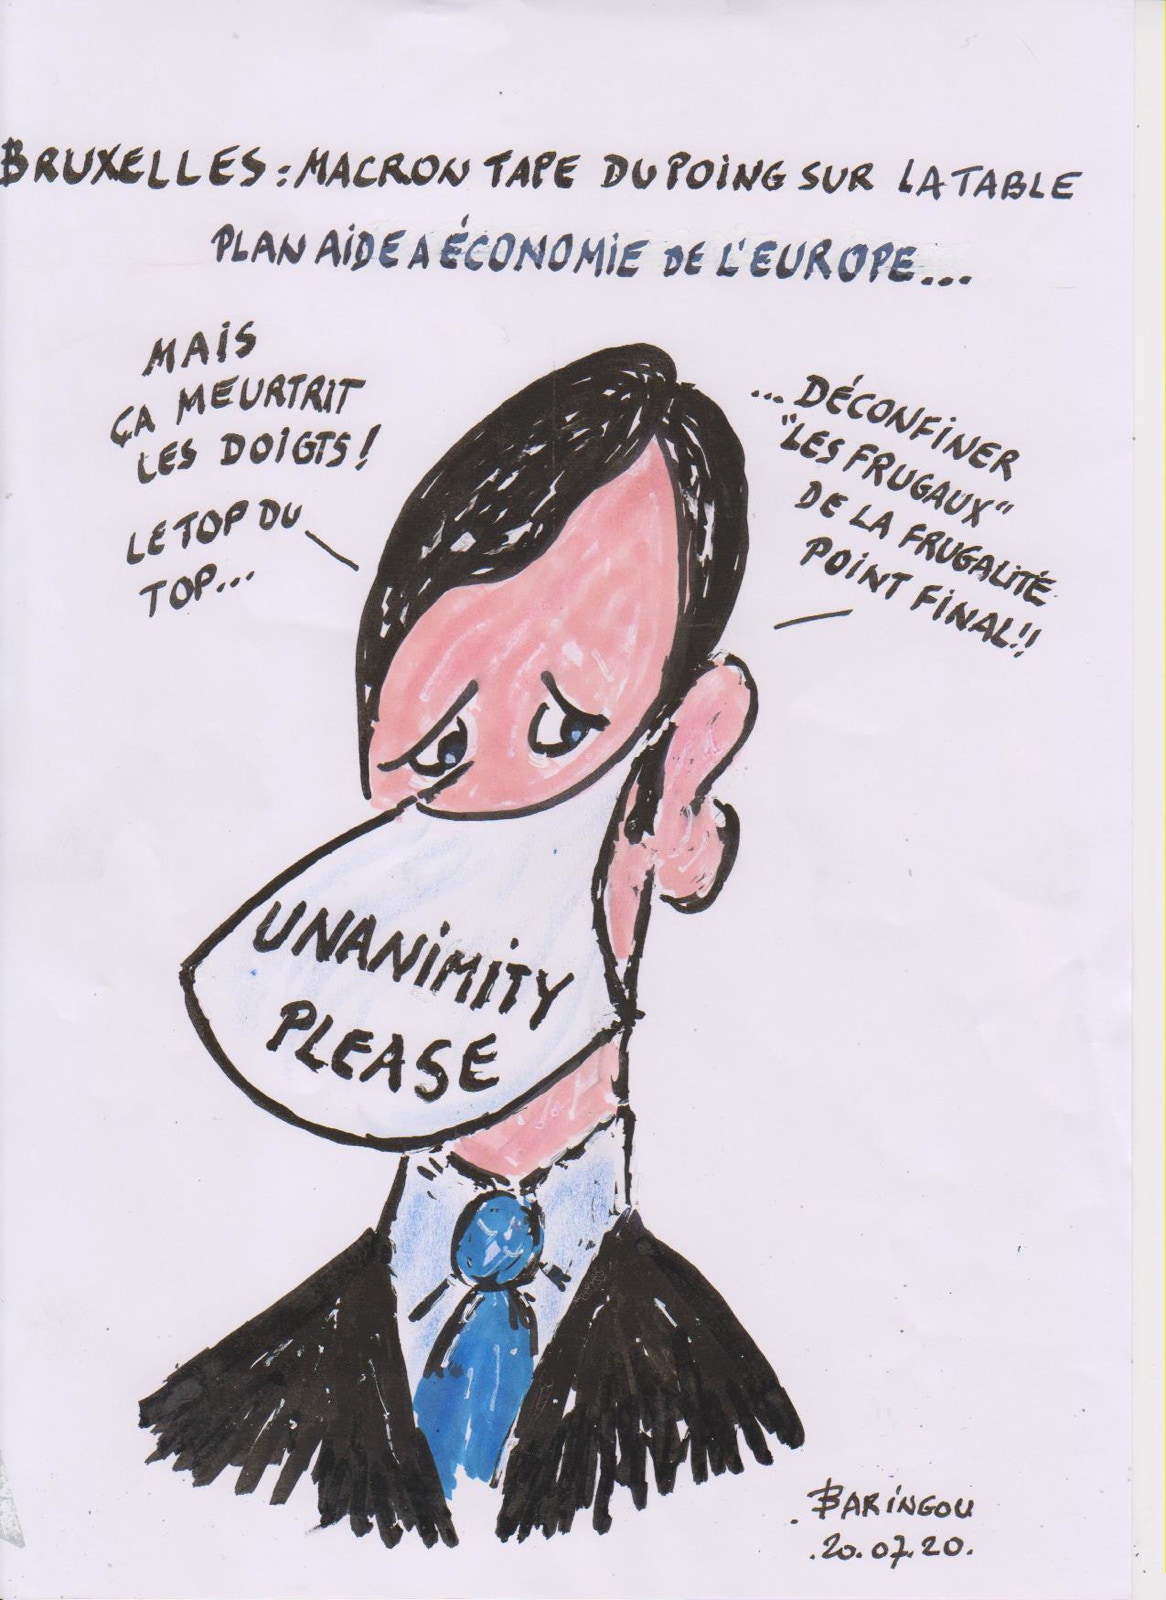 BRUXELLES : MACRON TAPE DU POING SUR LA TABLE
PLAN AIDE A ÉCONOMIE DE L'EUROPE...
MAIS
ÇA MEURTRIT
LES DOIGTS !
LE TOP DU
TOP...
... DÉCONFINER
"LES FRUGAUX"
DE LA FRUGALITÉ
POINT FINAL!!
UNANIMITY
PLEASE
BARINGOU
.20.07.20.